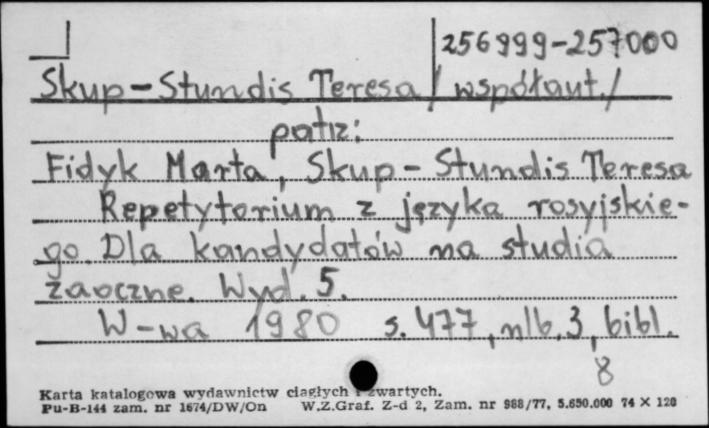 256999-257000
Skup-Stundis Teresa /współaut./
patrz:
Fidyk Marta, Skup-Stundis Teresa
Repetytorium z języka rosyjskie-
go. Dla kandydatów na studia
zaoczne. Wyd. 5.
W-wa 1980 s. 477, nlb. 3, bibl.
8
Karta katalogowa wydawnictw ciągłych i zwartych.
Pu-B-144 zam. nr 1674/DW/On W.Z.Graf. Z-d 2, Zam. nr 988/77. 5.650.000 74 X 120